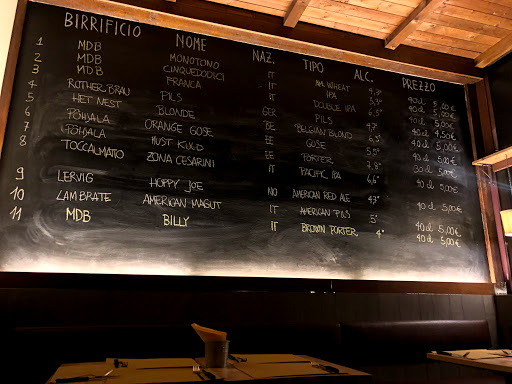 BIRRIFICIO NOME NAZ. TIPO ALC. PREZZO
1 MDB MONOTONO IT AM. WHEAT 4,3° 40 cl 5,00€
2 MDB CINQUEDODICI IT IPA 40 cl 5,00€
3 MDB FRANCA IT DOUBLE IPA 40 cl
4 ROTHER BRÄU PILS GER PILS 40 cl 4,50€
5 HET NEST BLONDE BE BELGIAN BLOND 40 cl 5,00€
6 PÕHJALA ORANGE GOSE EE GOSE 40 cl 5,00€
7 PÕHJALA MUST KULD EE PORTER 40 cl 5,00€
8 TOCCALMATO ZONA CESARINI IT PACIFIC IPA 6,6° 40 cl 5,00€
9 LERVIG HOPPY JOE NO AMERICAN RED ALE 4,7° 40 cl 5,00€
10 LAMBRATE AMERICAN MAGUT IT AMERICAN PILS 5° 40 cl 5,00€
11 MDB BILLY IT BROWN PORTER 4° 40 cl 5,00€